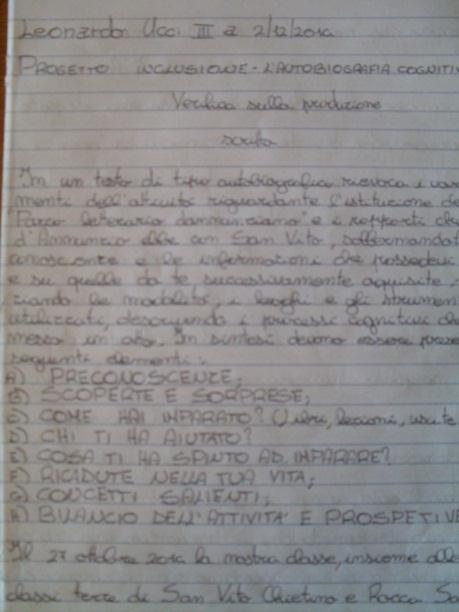 Leonardo Ucci III a 2/12/2014
PROGETTO INCLUSIONE - L'AUTOBIOGRAFIA COGNITIV
Verifica sulla produzione
scritta
In un testo di tipo autobiografico rievoca i vari
menti dell'attività riguardante l'istituzione de
"Parco letterario dannunziano" e i rapporti che
d'Annunzio ebbe con San Vito, soffermandot
conoscenze e le informazioni che possedevi
e su quelle da te successivamente acquisite,
ziando le modalità, i luoghi e gli strumen
utilizzati, descrivendo i processi cognitivi che
messo in atto. In sintesi devono essere prese
seguenti elementi:
A) PRECONOSCENZE;
B) SCOPERTE E SORPRESE;
C) COME HAI IMPARATO? (libri, lezioni, uscite
D) CHI TI HA AIUTATO?
E) COSA TI HA SPINTO AD IMPARARE?
F) RICADUTE NELLA TUA VITA;
G) CONCETTI SALIENTI;
H) BILANCIO DELL'ATTIVITÀ E PROSPETIVE
Il 27 ottobre 2014 la nostra classe, insieme alle
classi terze di San Vito Chietino e Rocca Sa